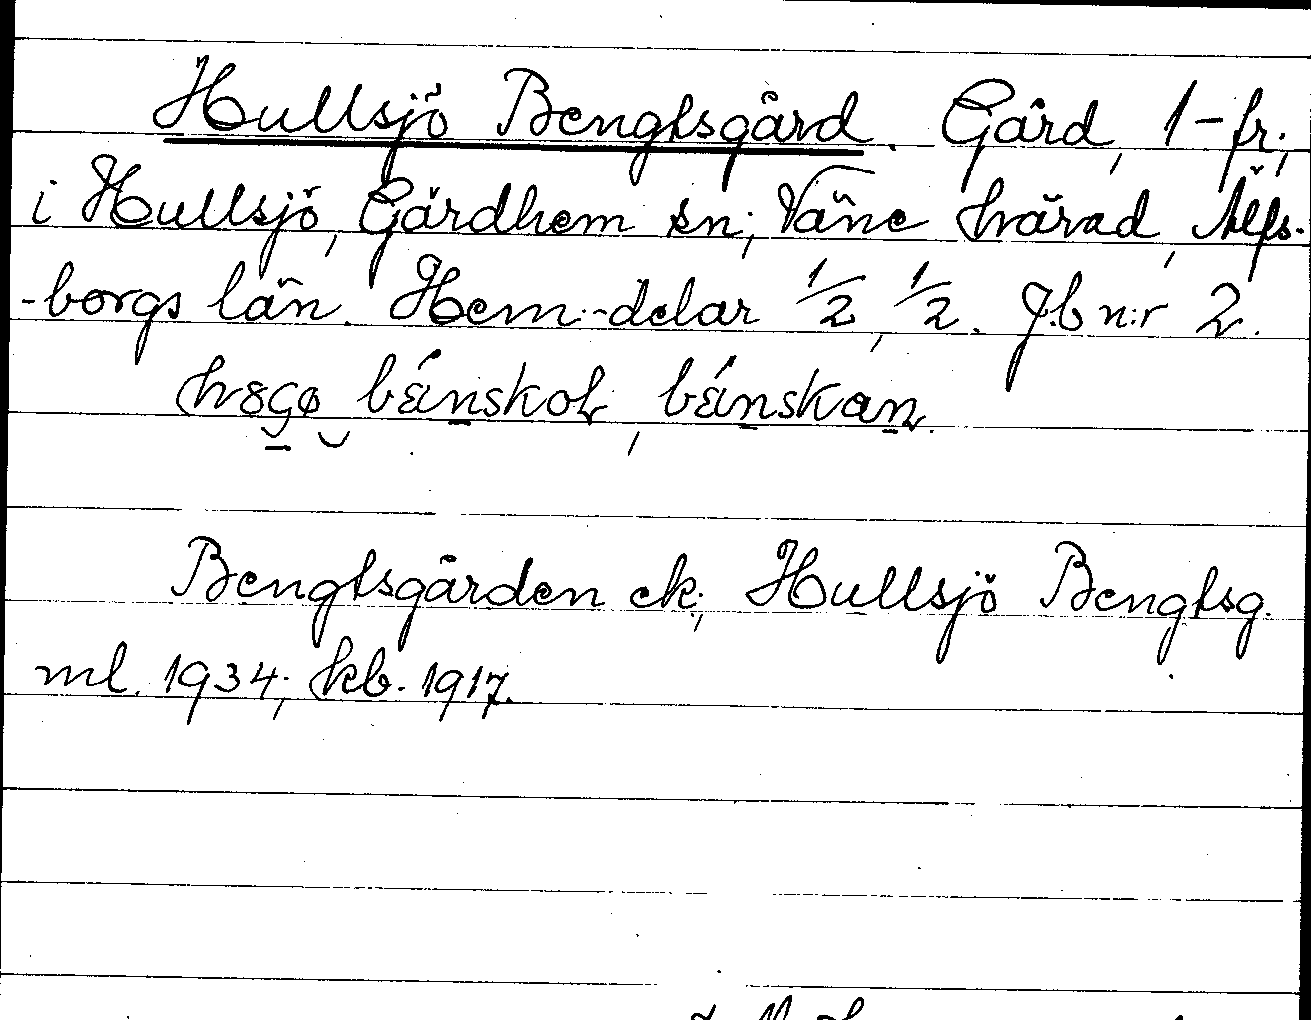 Hullsjö Bengtsgård. Gård, 1-fr.,
i Hullsjö, Gärdhem sn; Väne härad, Älfs-
-borgs län. Hem.-delar 1/2, 1/2. J.b n:r 2.
bénskan.
Bengtsgården ek; Hullsjö Bengtsg.
ml. 1934; kb. 1917.